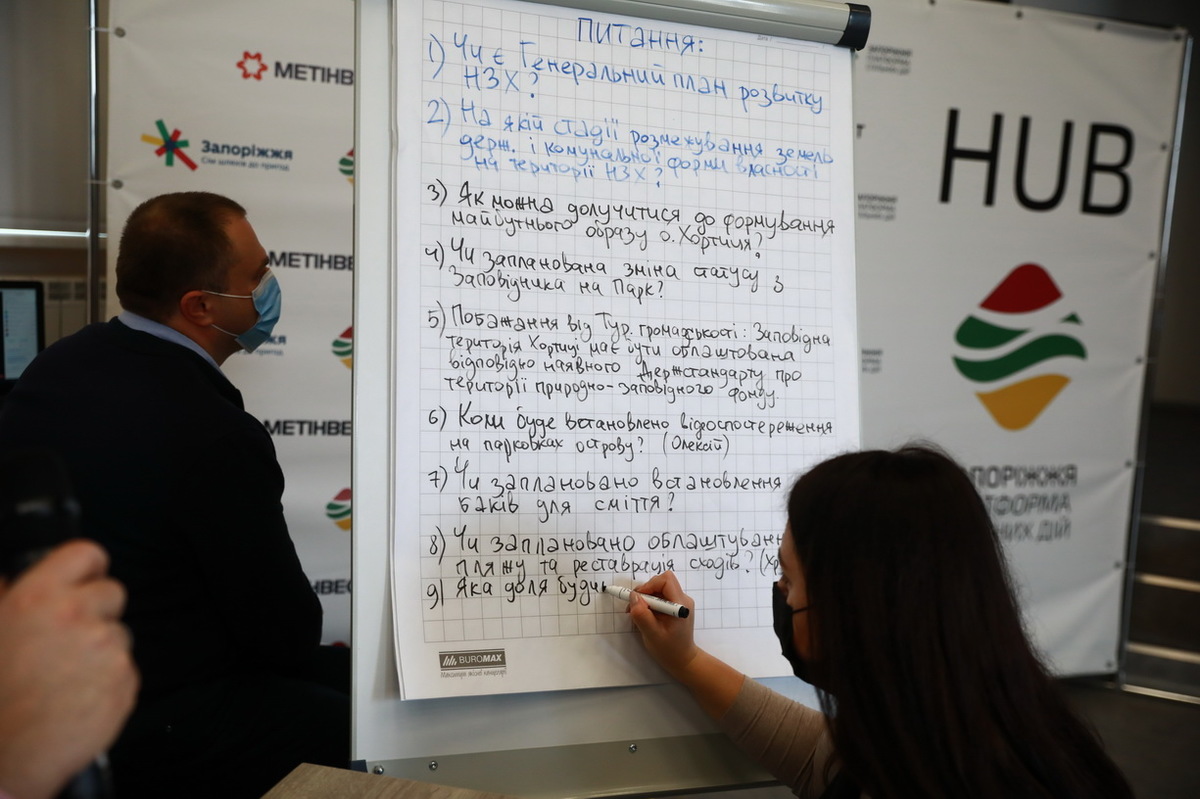 ПИТАННЯ:
1) Чи є Генеральний план розвитку
НЗХ?
2) На якій стадії розмежування земель
держ. і комунальної форми власності
на території НЗХ?
3) Як можна долучитися до формування
майбутнього образу о. Хортиця?
4) Чи запланована зміна статусу з
Заповідника на Парк?
5) Побажання від Тур. громадськості: Заповідна
територія Хортиці має бути облаштована
відповідно наявного Держстандарту про
території природно-заповідного фонду.
6) Коли буде встановлено відоспостереження
на парковках острову? (Олексій)
7) Чи заплановано встановлення
баків для сміття?
8) Чи заплановано облаштуван
пляжу та реставрація сходів?
9) Яка доля буди
BUROMAX
МЕТІНВЕ
Запоріжжя
Сім шляхів до пригод
МЕТІНВЕ
МЕТІНВЕ
НВЕС
HUB
ПОРІЖЖЯ
ТФОРМА
НИХ ДІЙ